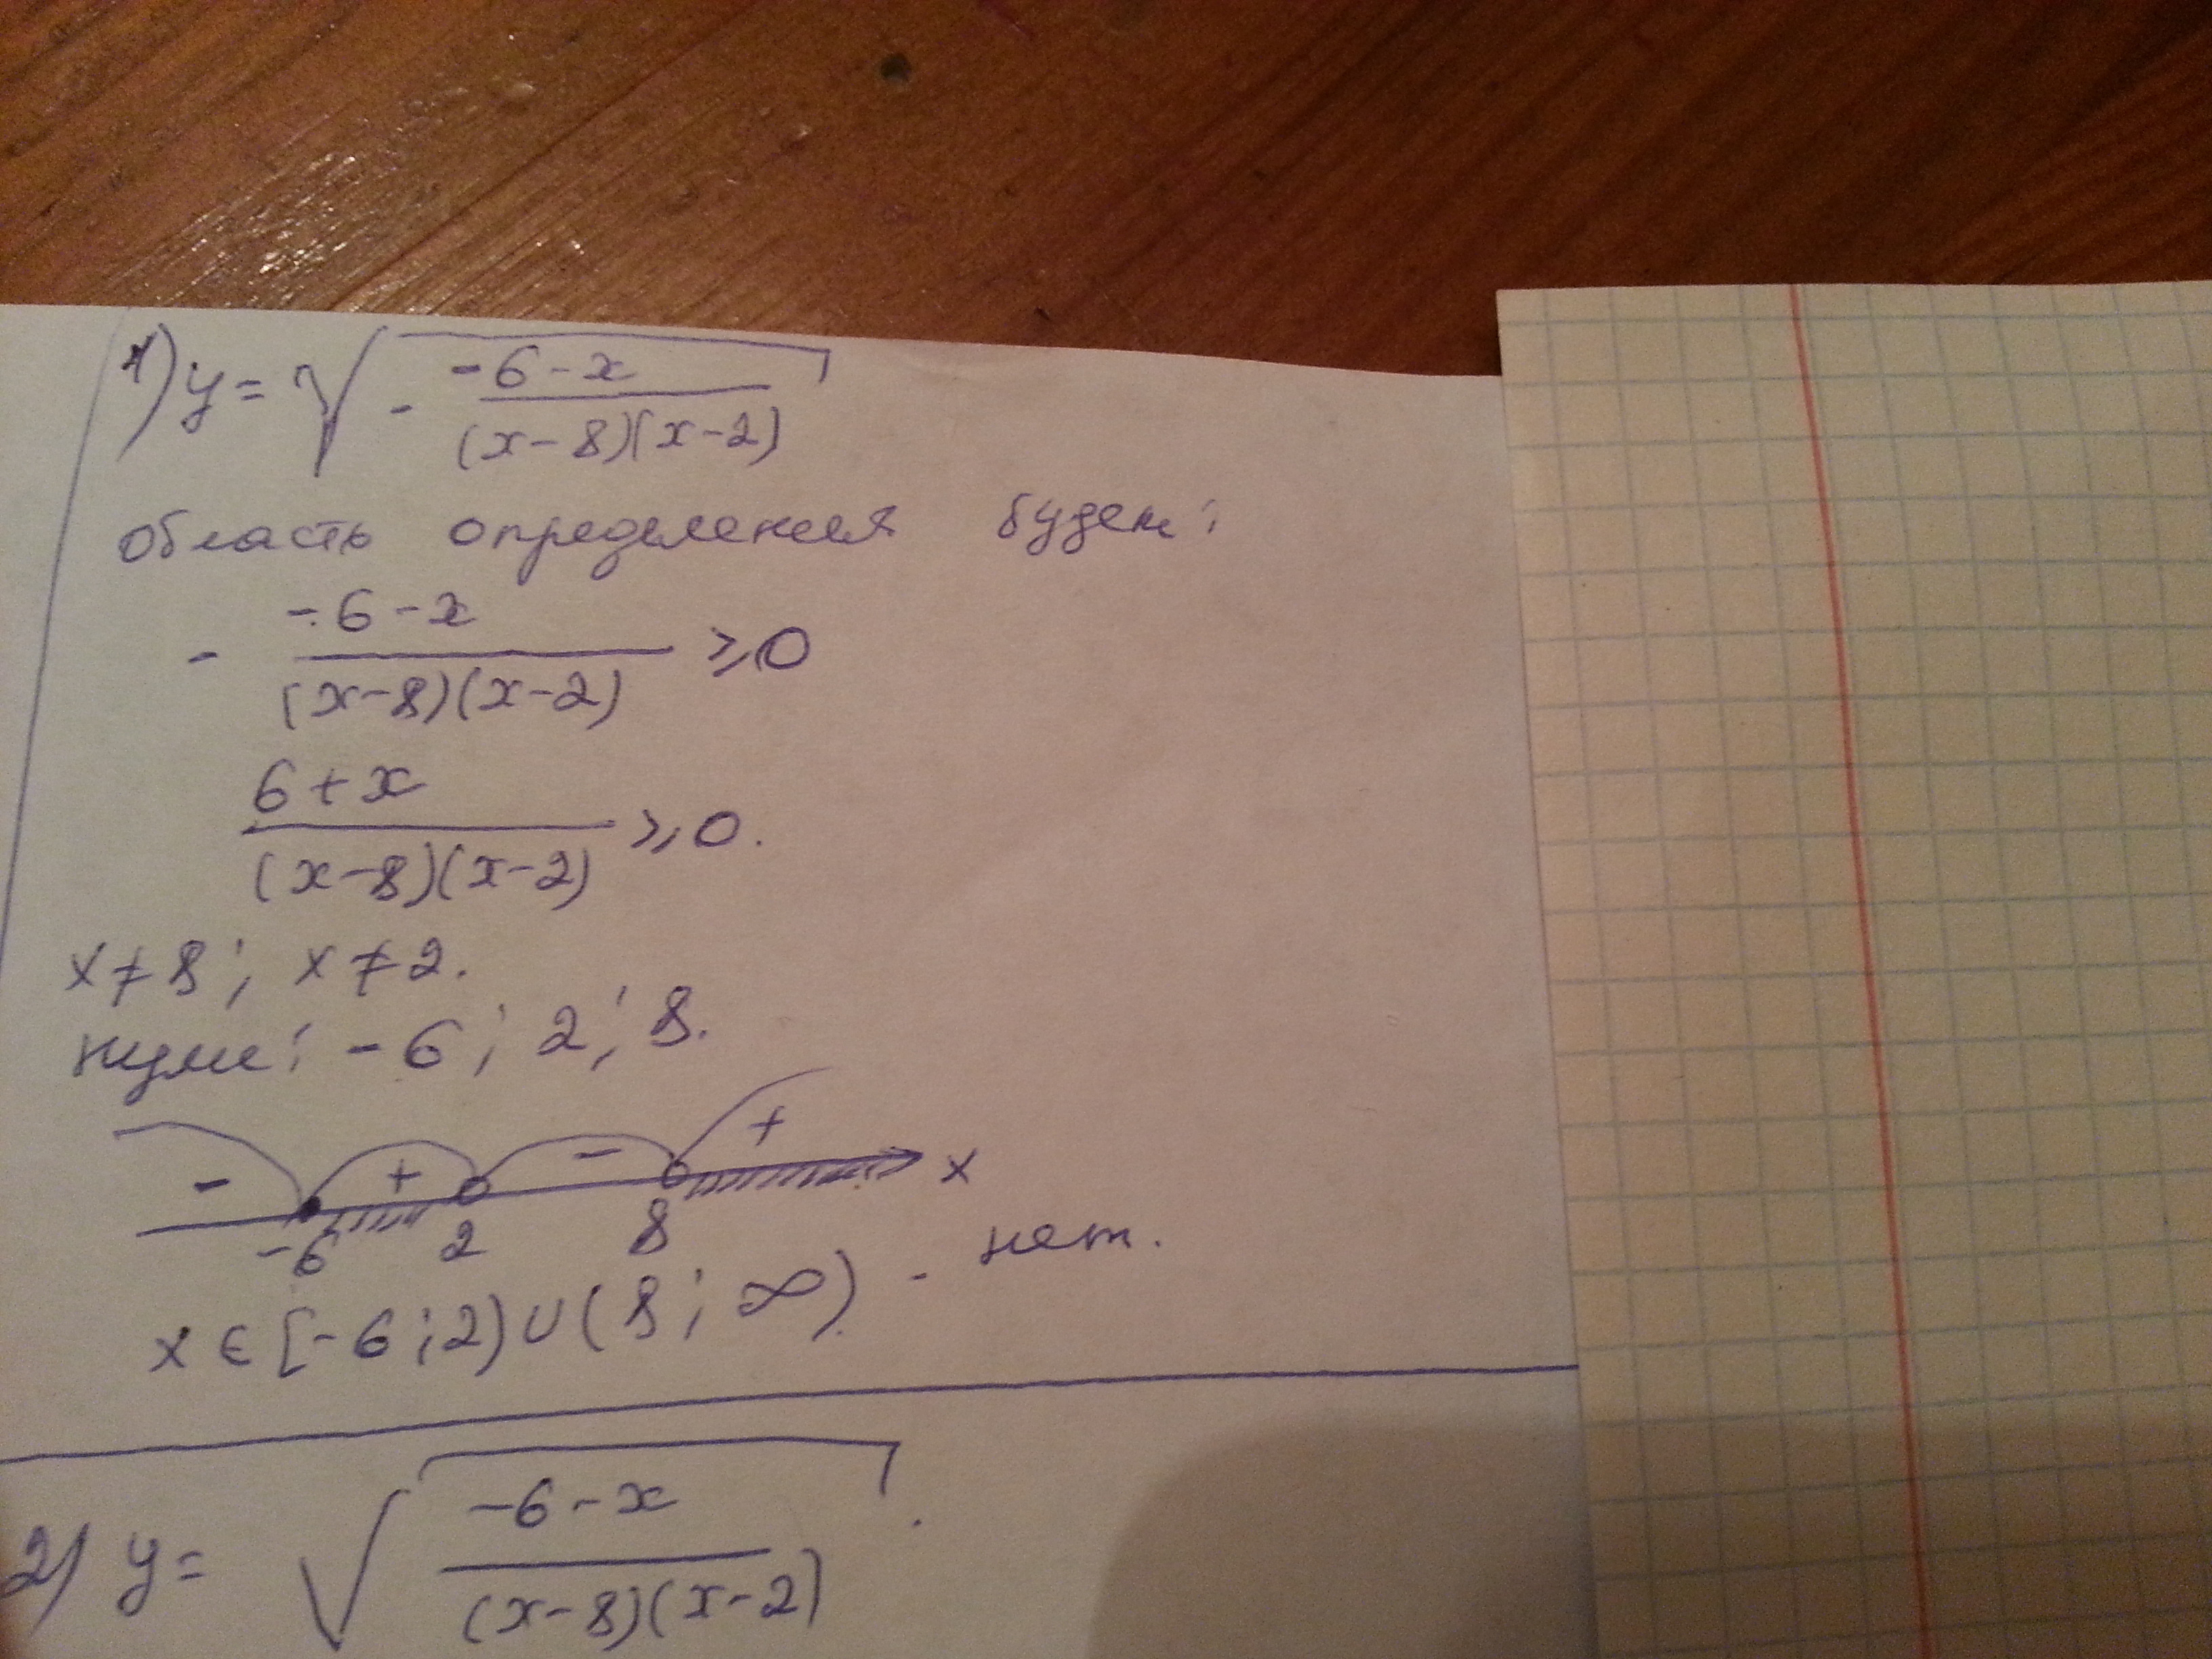 1) y = √(- (-6-x)/((x-8)(x-2)))
область определения будет:
- (-6-x)/((x-8)(x-2)) ⩾ 0
(6+x)/((x-8)(x-2)) ⩾ 0.
x ≠ 8; x ≠ 2.
нули: -6; 2; 8.
- + - +
-6 2 8 x
x ∈ [-6; 2) ∪ (8; ∞) - нет.
2) y = √((-6-x)/((x-8)(x-2))).